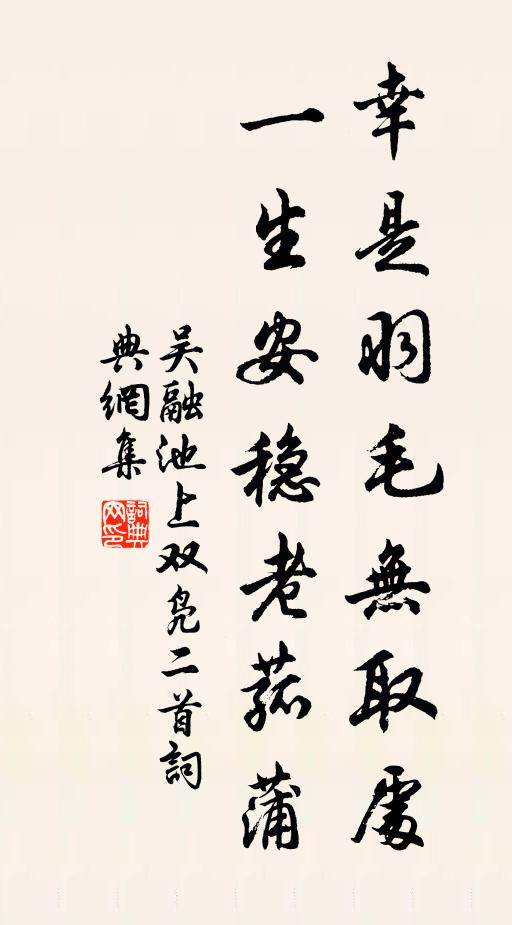 幸是羽毛無取處
一生安穩老菰蒲
吴融池上双凫二首詞
典網集
詞典
网印